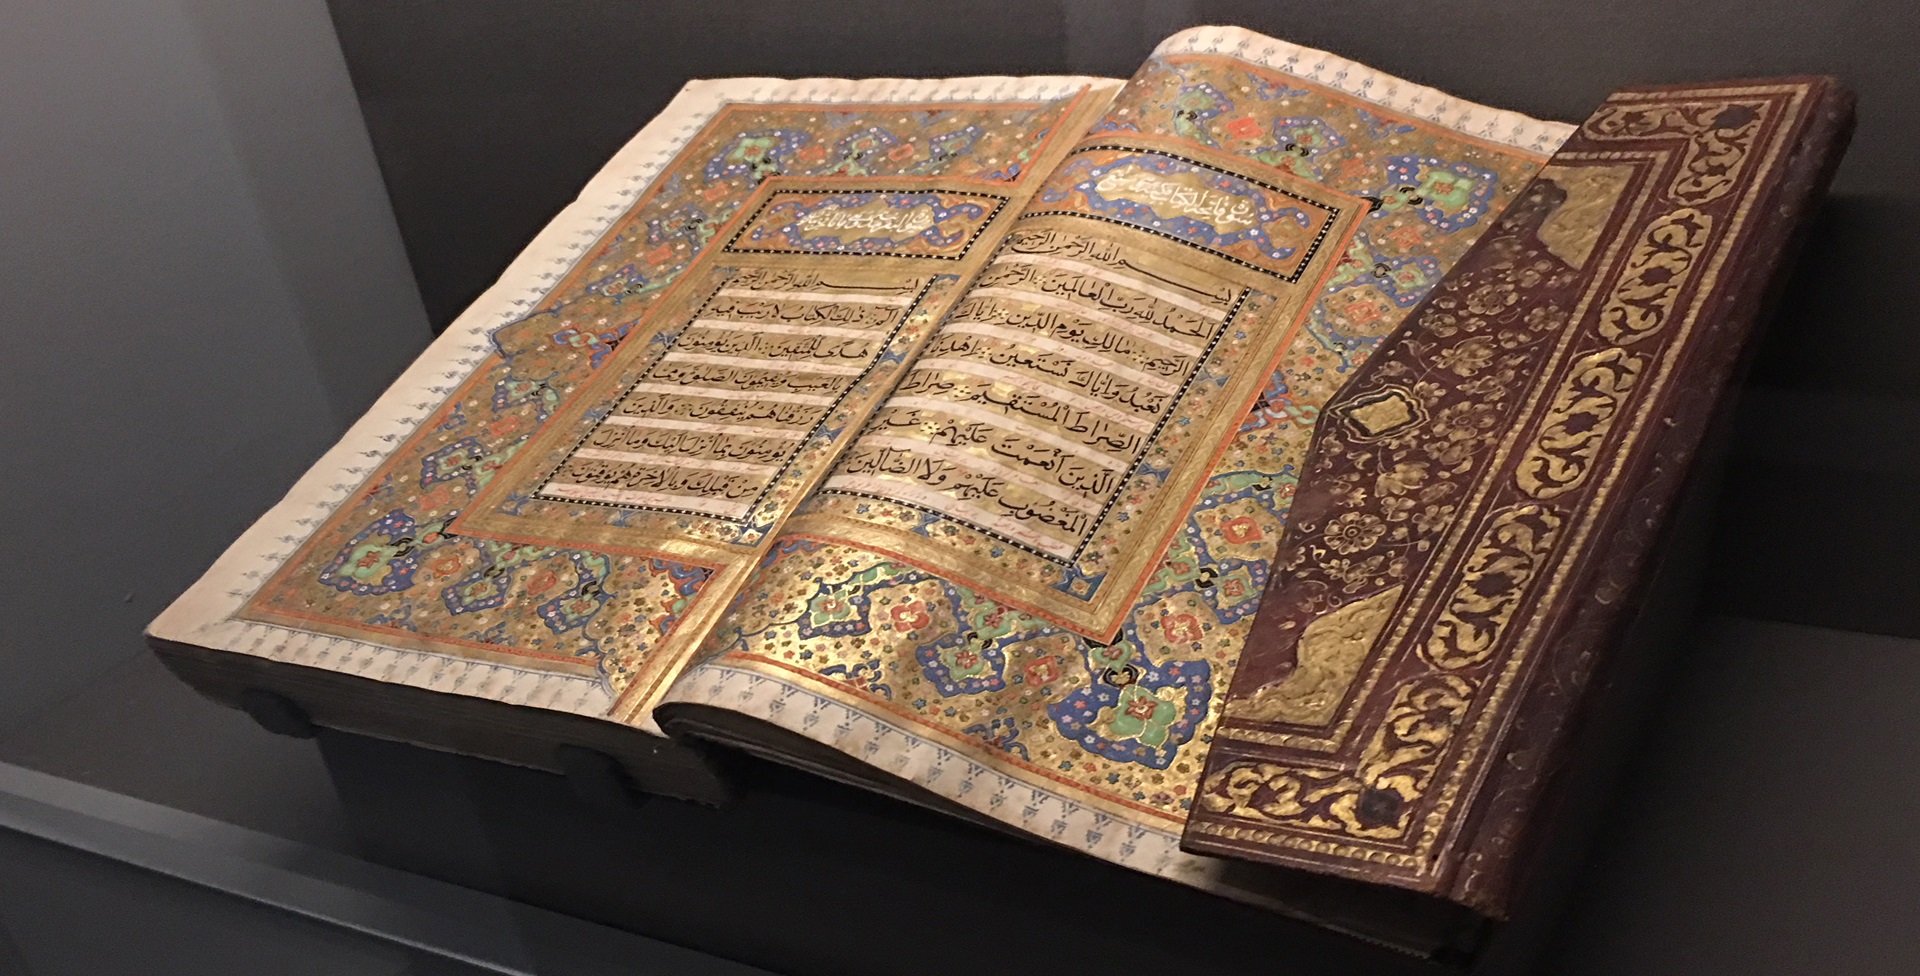 سورة فاتحة الكتاب
بِسْمِ اللهِ الرَّحْمٰنِ الرَّحِيمِ
اَلْحَمْدُ لِلّٰهِ رَبِّ الْعَالَمِينَ الرَّحْمٰنِ
الرَّحِيمِ مَالِكِ يَوْمِ الدِّينِ اِيَّاكَ
نَعْبُدُ وَاِيَّاكَ نَسْتَعِينُ اِهْدِنَا
الصِّرَاطَ الْمُسْتَقِيمَ صِرَاطَ
الَّذِينَ اَنْعَمْتَ عَلَيْهِمْ غَيْرِ
الْمَغْضُوبِ عَلَيْهِمْ وَلَا الضَّالِّينَ
سورة البقرة
بِسْمِ اللهِ الرَّحْمٰنِ الرَّحِيمِ
الٓمٓ ذٰلِكَ الْكِتَابُ لَا رَيْبَ فِيهِ
هُدًى لِلْمُتَّقِينَ اَلَّذِينَ يُؤْمِنُونَ
بِالْغَيْبِ وَيُقِيمُونَ الصَّلٰوةَ وَمِمَّا
رَزَقْنَاهُمْ يُنْفِقُونَ وَالَّذِينَ
يُؤْمِنُونَ بِمَا اُنْزِلَ اِلَيْكَ وَمَا اُنْزِلَ
مِنْ قَبْلِكَ وَبِالْاٰخِرَةِ هُمْ يُوقِنُونَ